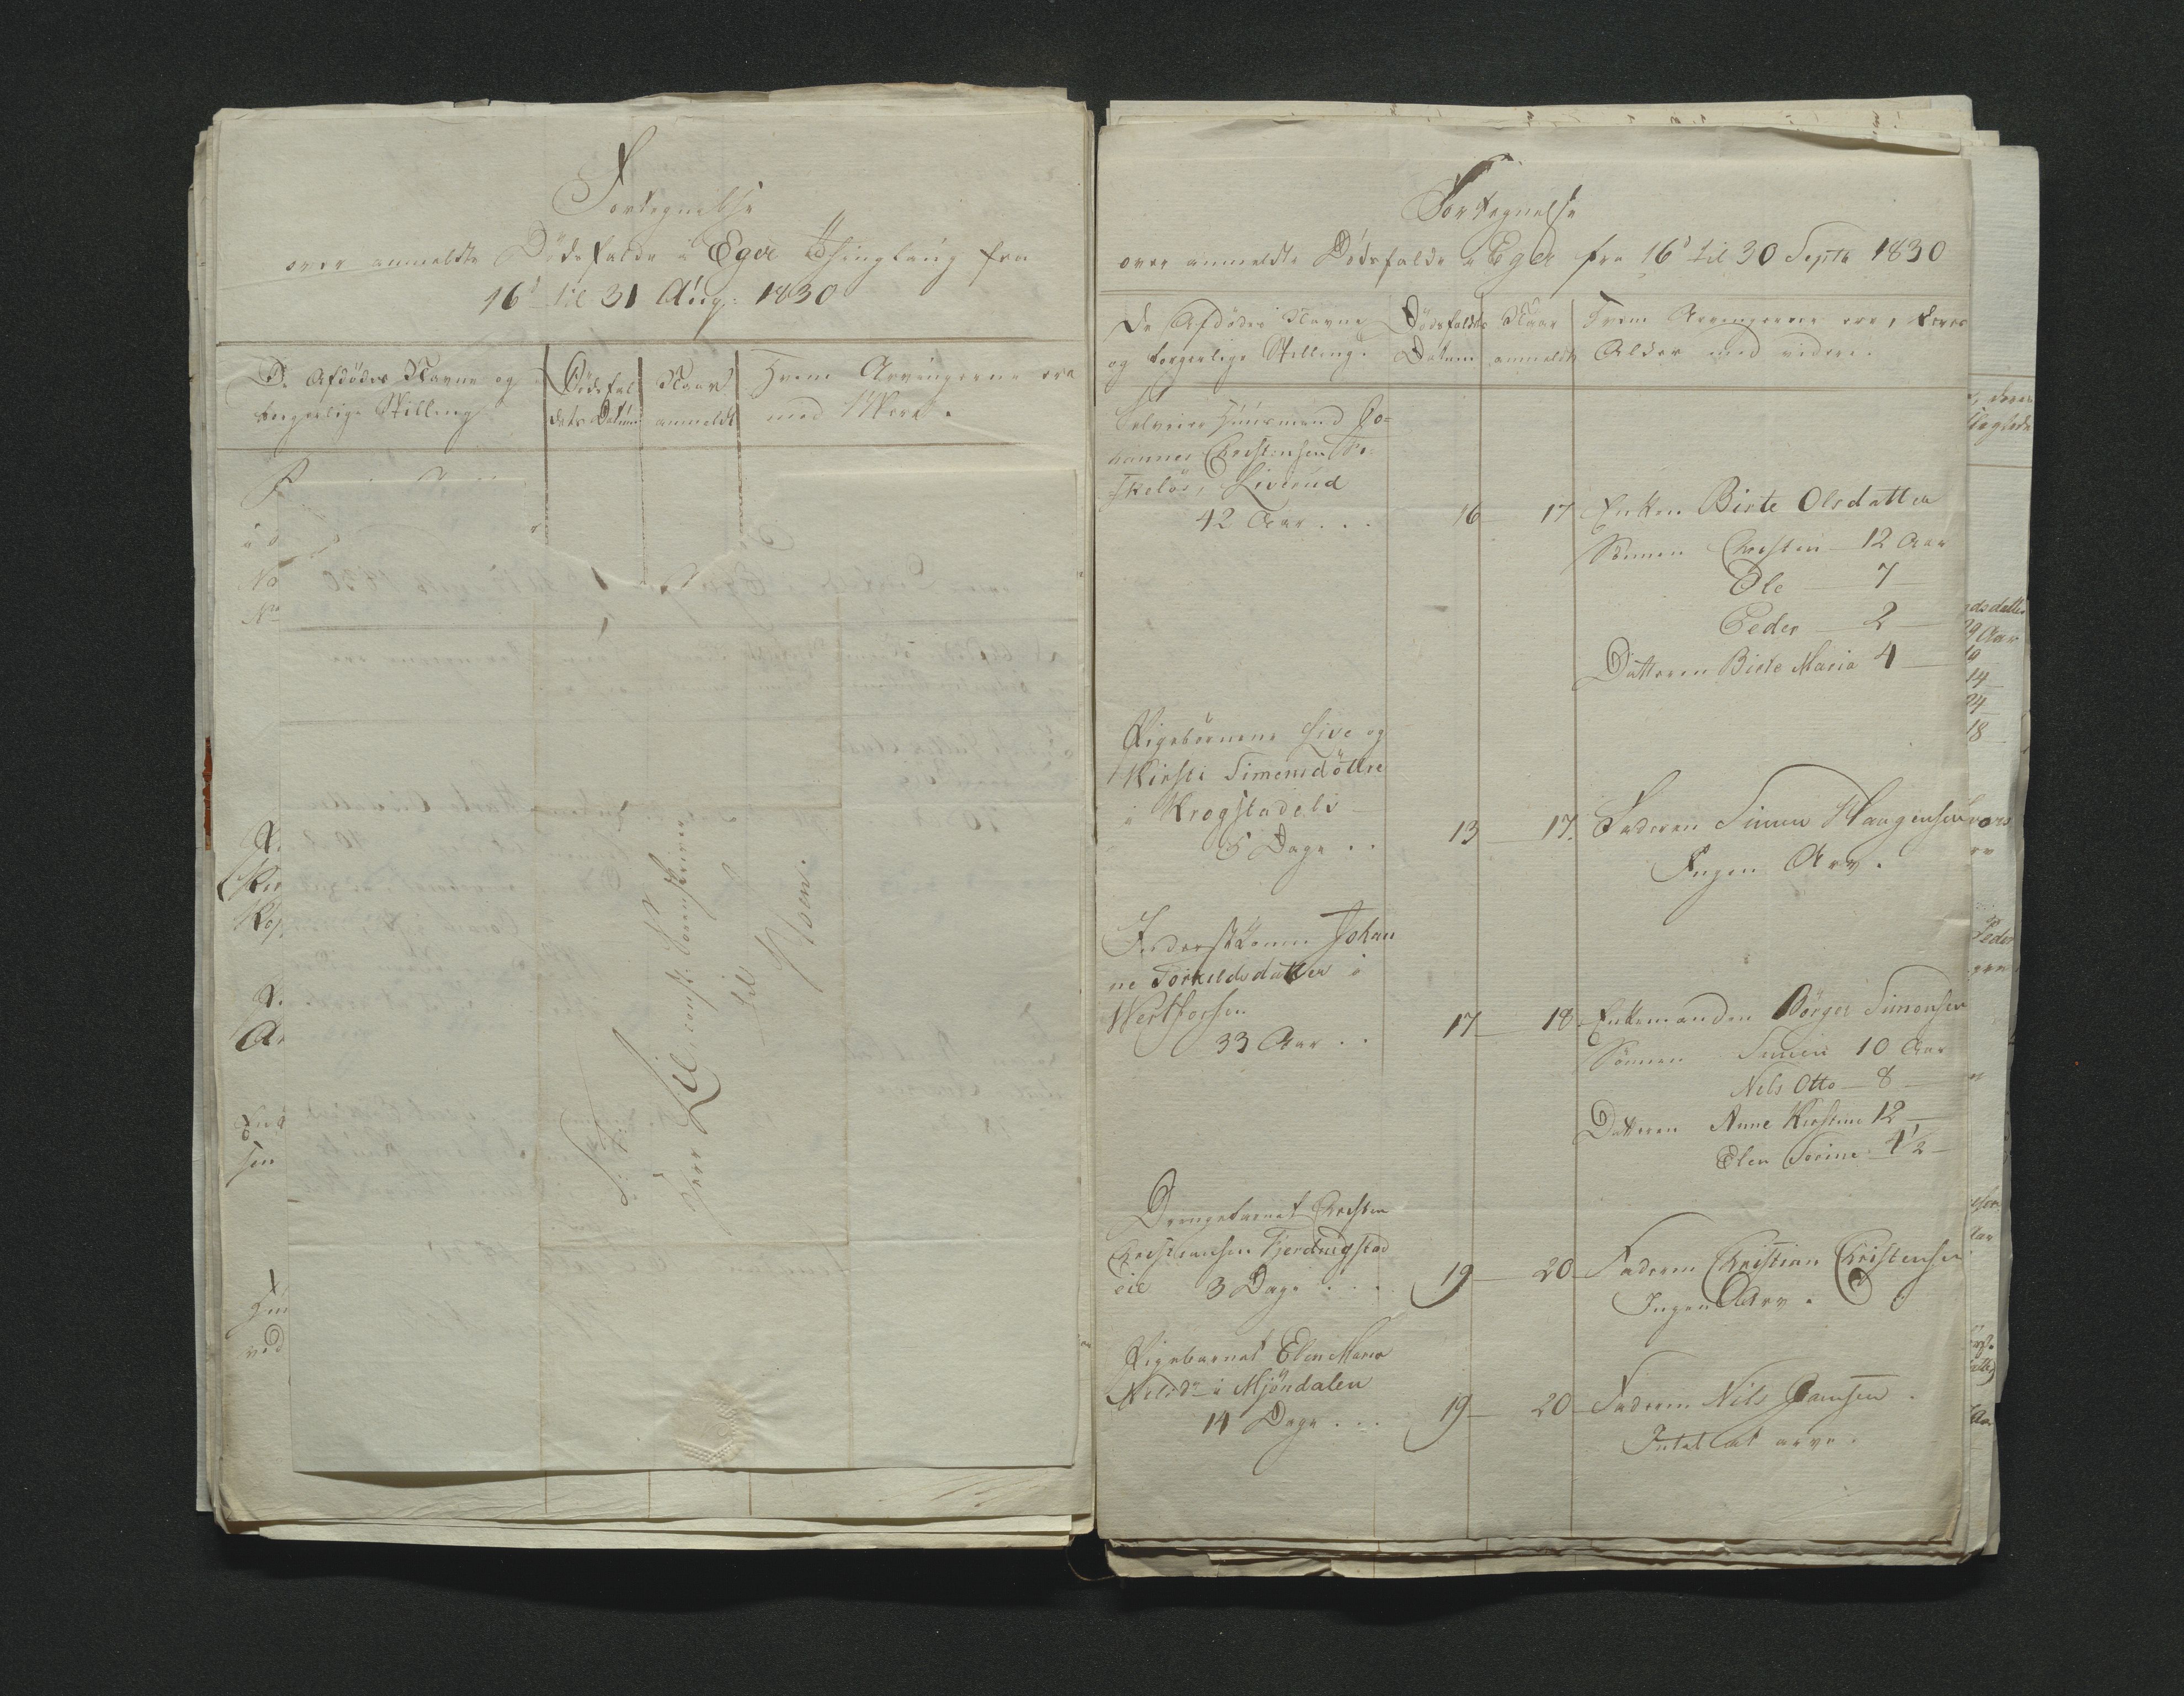 Fortegnelse
over anmeldte Dödsfalde i Eger Thinglaug fra
16d til 31 Aug: 1830
De Afdödes Navne og
borgerlige Stilling
Dödsfal
dets Datum
Naar
anmeldt
Hvem Arvingerne ere
med Mere.
S: T:
Herr Lil const: Sorenskriver
til
Moen.
Fortegnelse
over anmeldte Dödsfalde i Eger fra 16d til 30 Septb 1830
De Afdödes Navne
og borgerlige Stilling.
Dödsfaldets
Datum
Naar
anmeldt
Hvem Arvingerne ere, deres
Alder med videre.
Selveier Huusmand Jo-
hannes Christensen
Liverud
42 Aar . . .
16 — 17
Enken Birte Olsdatter
Sönnen Christen — 12 Aar
Ole — 7 —
Peder — 2 —
Datteren Birte Maria 4 —
Pigebörnene Live og
Kirsti Simensdöttre
i Krogstadeli
5 Dage . .
13 — 17.
Faderen Simen Haagensen
Ingen Arv.
Inderstkonen Johan
ne Torkildsdatter i
Westfossen
33 Aar . .
17 — 18
Enkemanden Börger Simonsen
Sönnen Simen 10 Aar
Nils Otto — 8 —
Datteren Anne Kirstine 12 —
Elen Sorine 4½ —
Drengebarnet Christen
Christiansen Fjerdingstad
eie 3 Dage . . .
19 — 20
Faderen Christian Christensen
Ingen Arv.
Pigebarnet Elen Maria
Nilsd. i Mjöndalen
14 Dage . . .
19 — 20
Faderen Nils Hansen.
Intet at arve.